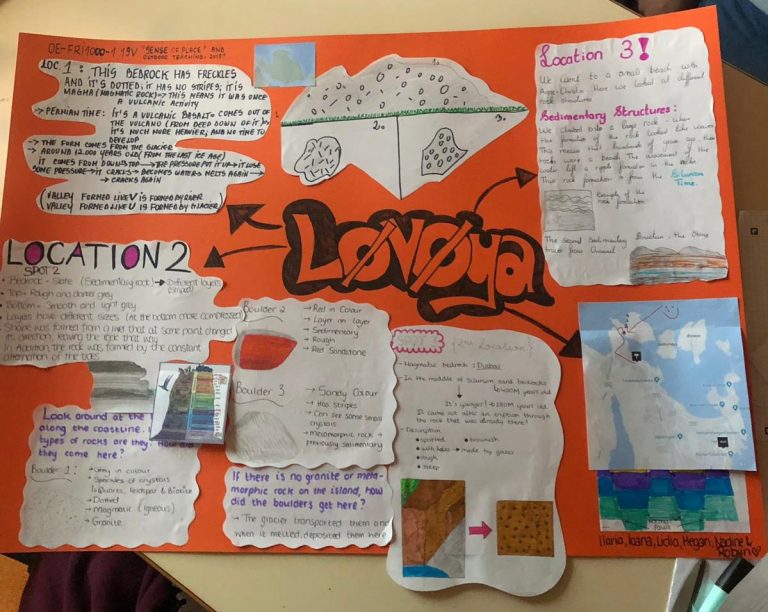 OE-FRI1000-1 19V "SENSE OF PLACE" AND
OUTDOOR TEACHING, 2019
LOC. 1: THIS BEDROCK HAS FRECKLES
AND IT'S DOTTED; IT HAS NO STRIPES; IT IS
MAGMA (MAGMATIC ROCK) → THIS MEANS IT WAS ONCE
A VULCANIC ACTIVITY
→ PERMIAN TIME: IT'S A VULCANIC BASALT → COMES OUT OF
THE VULCANO (FROM DEEP DOWN OF IT)
IT'S MUCH MORE HEAVIER, AND NO TIME TO
DEVELOP
→ THE FORM COMES FROM THE GLACIER
→ AROUND 12.000 YEARS OLD (FROM THE LAST ICE AGE)
IT COMES FROM DOWN → TOP → THE PRESSURE PUT IT UP → IT LOSE
SOME PRESSURE → IT CRACKS → BECOMES WATER → MELTS AGAIN →
→ CRACKS AGAIN
(VALLEY FORMED LIKE V IS FORMED BY RIVER
VALLEY FORMED LIKE U IS FORMED BY GLACIER)
1.
2.
3.
Location 3!
We went to a small beach with
Here we looked at different
rock structures
Sedimentary Structures:
We climbed onto a large rock. When
the formation of the rock looked like waves
This means that hundreds of years ago these
rocks were a beach. The movement of the
water left a ripple formation in the rocks
This rock formation is from the Silurian
Time.
Example of the
rock formation
The second Sedimentary Structure - the Stone
from Silurian
LØVØya
LOCATION 2
SPOT 2
• Bedrock - Slate (Sedimentary rock) → Different layers
• Top - Rough and darker grey
• Bottom - Smooth and light grey
• Layers have different sizes (At the bottom more compressed)
• Shape was formed from a river that at some point changed
its direction, leaving the rock that way.
In addition, the rock was formed by the constant
alternation of the tides
Look around at the
along the coastline.
types of rocks are they? How did
they come here?
Boulder 1:
→ Grey in colour
→ Speckles of crystals
↳ Quartz, feldspar & Biotite
→ Dotted
→ Magmatic (igneous)
→ Granite
Boulder 2
→ Red in Colour
→ Layer on layer
→ Sedimentary
→ Rough
→ Red Sandstone
Boulder 3
→ Sandy Colour
→ Has stripes
→ Can see some small
crystals
→ Metamorphic rock →
previously sedimentary
If there is no granite or meta-
morphic rock on the island, how
did the boulders get here?
→ The glacier transported them and
when it melted, deposited them here
SPOT 3 (2nd Location)
- Magmatic bedrock: Diabas
- In the middle of silurian sand bedrocks
It's younger!
It came out after an eruption through
the rock that was already there!
- Description
• spotted
• brownish
• with holes → made by gases
• rough
• steep
Ilaria, Ioana, Lidia, Megan, Nadine &
Robyn ♡